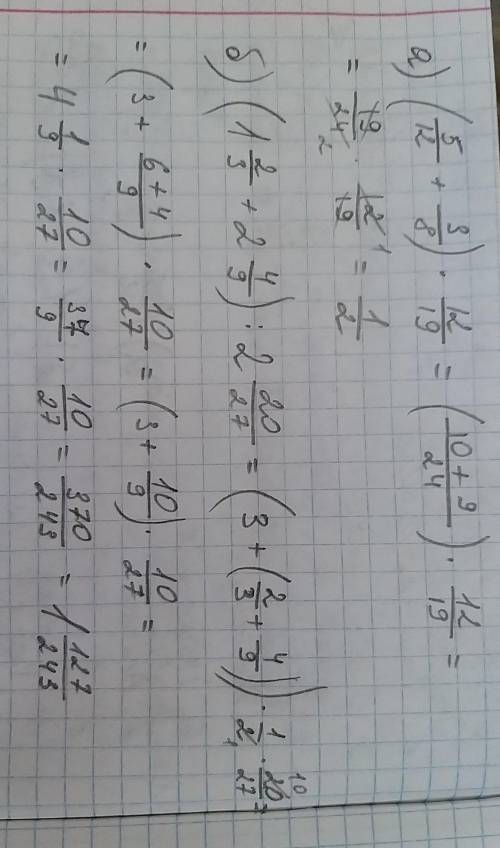 а) (5/12 + 3/8) · 12/19 = ((10+9)/24) · 12/19 =
= 19/24 2 · 12 1/19 = 1/2
б) (1 2/3 + 2 4/9) : 2 20/27 = (3 + (2/3 + 4/9)) · 1/2 1 · 20 10/27 =
= (3 + (6+4)/9) · 10/27 = (3 + 10/9) · 10/27 =
= 4 1/9 · 10/27 = 37/9 · 10/27 = 370/243 = 1 127/243